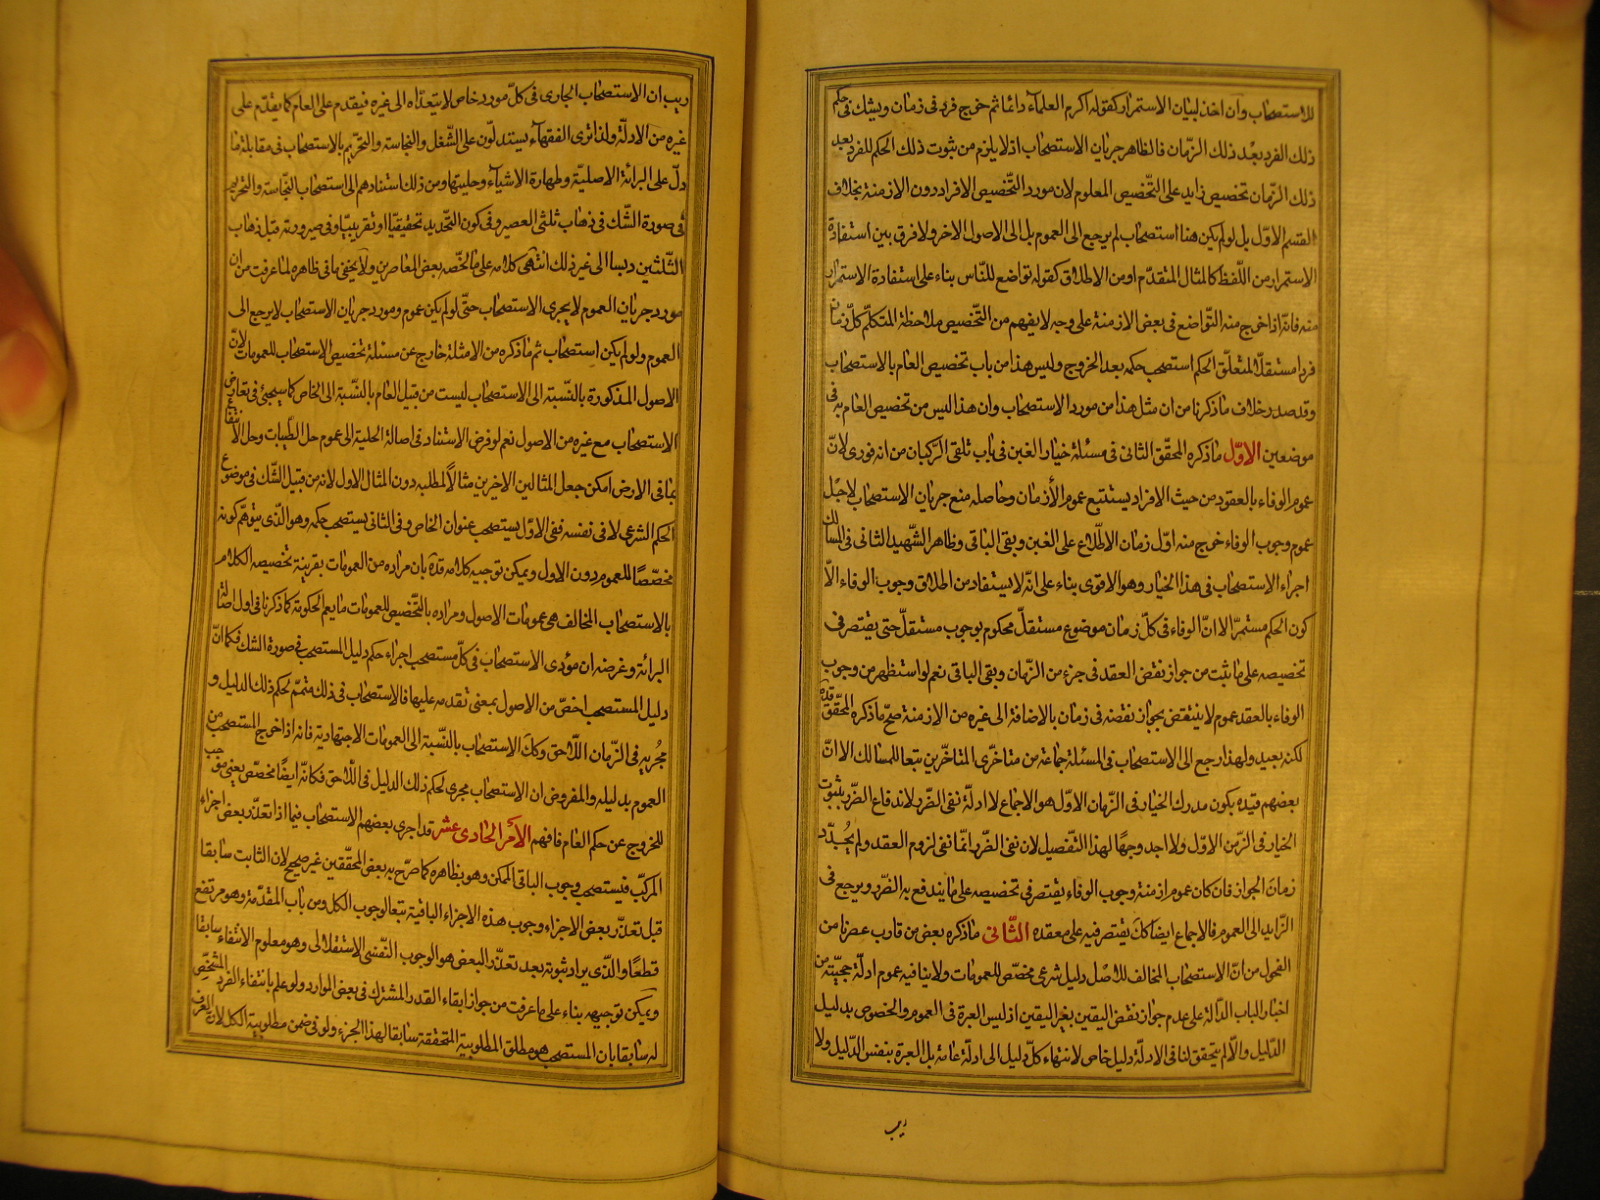 للاستصحاب وان اخذ لبيان الاستمرار كقوله اكرم العلماء دائما ثم خرج فرد فى زمان ويشك فى حكم
ذلك الفرد بعد ذلك الزمان فالظاهر جريان الاستصحاب اذ لا يلزم من ثبوت ذلك الحكم للفرد بعد
ذلك الزمان تخصيص زايد على التخصيص المعلوم لان مورد التخصيص الافراد دون الازمنة بخلاف
القسم الاوّل بل لو لم يكن هنا استصحاب لم يرجع الى العموم بل الى الاصول الاخر ولا فرق بين استفادة
الاستمرار من اللّفظ كالمثال المتقدّم او من الاطلاق كقوله تواضع للنّاس بناء على استفادة الاستمرار
منه فانّه اذا خرج منه التّواضع فى بعض الازمنة على وجه لا يفهم من التّخصيص ملاحظة المتكلّم كلّ زمان
فردا مستقلّا لمتعلّق الحكم استصحب حكمه بعد الخروج وليس هذا من باب تخصيص العام بالاستصحاب
وقد صدر خلاف ما ذكرنا من ان مثل هذا من مورد الاستصحاب وان هذا ليس من تخصيص العام به فى
موضعين الاوّل ما ذكره المحقّق الثانى فى مسئلة خيار الغبن فى باب تلقى الرّكبان من انه فورى لانّ
عموم الوفاء بالعقود من حيث الافراد يستتبع عموم الأزمان وحاصله منع جريان الاستصحاب لاجل
عموم وجوب الوفاء خرج منه اوّل زمان الاطّلاع على الغبن وبقى الباقى وظاهر الشّهيد الثانى فى المسالك
اجراء الاستصحاب فى هذا الخيار وهو الاقوى بناء على انّه لا يستفاد من اطلاق وجوب الوفاء الّا
كون الحكم مستمرّا لا انّ الوفاء فى كلّ زمان موضوع مستقلّ محكوم بوجوب مستقلّ حتى يقتصر فى
تخصيصه على ما ثبت من جواز نقض العقد فى جزء من الزّمان وبقى الباقى نعم لو استظهر من وجوب
الوفاء بالعقد عموم لا ينتقض بجواز نقضه فى زمان بالاضافة الى غيره من الازمنة صحّ ما ذكره المحقّق قدّه
لكنه بعيد ولهذا رجع الى الاستصحاب فى المسئلة جماعة من متاخّرى المتاخّرين تبعا للمسالك الا انّ
بعضهم قيّده بكون مدرك الخيار فى الزّمان الاوّل هو الاجماع لا ادلّة نفى الضّرر لاندفاع الضّرر بثبوت
الخيار فى الزّمن الاوّل ولا اجد وجهًا لهذا التّفصيل لان نفى الضّرر انّما نفى لزوم العقد ولم يُحدّد
زمان الجواز فان كان عموم ازمنة وجوب الوفاء يقتصر فى تخصيصه على ما يندفع به الضّرر ويرجع فى
الزّايد الى العموم فالاجماع ايضا كك يقتصر فيه على معقده الثّانى ما ذكره بعض من قارب عصرنا من
الفحول من انّ الاستصحاب المخالف للاصل دليل شرعى مخصّص للعمومات ولا ينافيه عموم ادلّة حجيّته من
اخبار الباب الدالّة على عدم جواز نقض اليقين بغير اليقين اذ ليس العبرة فى العموم والخصوص بدليل
الدّليل والّا لم يتحقق لنا فى الادلّة دليل خاص لانتهاء كلّ دليل الى ادلّة عامّة بل العبرة بنفس الدّليل ولا
ريب
ريب ان الاستصحاب الجارى فى كلّ مورد خاص لا يتعدّاه الى غيره فيقدم على العام كما يقدّم على
غيره من الادلّة ولذا ترى الفقهاء يستدلّون على الشّغل والنجاسة والتحريم بالاستصحاب فى مقابلة ما
دلّ على البرائة الاصليّة وطهارة الاشياء وحليتها ومن ذلك استنادهم الى استصحاب النّجاسة والتحريم
فى صورة الشّك فى ذهاب ثلثى العصير وفى كون التّحديد تحقيقيّا او تقريبيّا وفى صيرورته قبل ذهاب
الثّلثين دبسا الى غير ذلك انتهى كلامه على ما لخّصه بعض المعاصرين ولا يخفى ما فى ظاهره لما عرفت من ان
مورد جريان العموم لا يجرى الاستصحاب حتّى لو لم يكن عموم ومورد جريان الاستصحاب لا يرجع الى
العموم ولو لم يكن استصحاب ثم ما ذكره من الامثلة خارج عن مسئلة تخصيص الاستصحاب للعمومات لانّ
الاصول المذكورة بالنّسبة الى الاستصحاب ليست من قبيل العام بالنّسبة الى الخاص كما سيجئ فى تعارض
الاستصحاب مع غيره من الاصول نعم لو فرض الاستناد فى اصالة الحلية الى عموم حل الطّيبات وحل الانتفاع
بما فى الارض امكن جعل المثالين الاخيرين مثالًا لمطلبه دون المثال الاول لانه من قبيل الشّك فى موضوع
الحكم الشرعى لا فى نفسه ففى الاوّل يستصحب عنوان الخاص وفى الثانى يستصحب حكمه وهو الّذى يتوهّم كونه
مخصّصًا للعموم دون الاول ويمكن توجيه كلامه قدّه بان مراده من العمومات بقرينة تخصيصه الكلام
بالاستصحاب المخالف هى عمومات الاصول ومراده بالتّخصيص للعمومات ما يعم الحكومة كما ذكرنا فى اول اصالة
البرائة وغرضه ان مؤدى الاستصحاب فى كلّ مستصحب اجراء حكم دليل المستصحب فى صورة الشك فكما انّ
دليل المستصحب اخصّ من الاصول بمعنى تقدمه عليها فالاستصحاب فى ذلك متمّم لحكم ذلك الدليل و
مجُريه فى الزّمان اللّاحق وكك الاستصحاب بالنّسبة الى العمومات الاجتهادية فانه اذا خرج المستصحب من
العموم بدليله والمفروض ان الاستصحاب مجرى لحكم ذلك الدليل فى اللّاحق فكانّه ايضًا مخصّص يعنى موجب
للخروج عن حكم العام فافهم الأمر الحادى عشر قد اجرى بعضهم الاستصحاب فيما اذا تعذّر بعض اجزاء
المركّب فيستصحب وجوب الباقى الممكن وهو بظاهره كما صرّح به بعض المحقّقين غير صحيح لان الثابت سابقا
قبل تعذّر بعض الاجزاء وجوب هذه الاجزاء الباقية تبعا لوجوب الكل ومن باب المقدّمة وهو مرتفع
قطعًا والّذى يراد ثبوته بعد تعذّر البعض هو الوجوب النّفسى الاستقلالى وهو معلوم الانتفاء سابقا
ويمكن توجيهه بناء على ما عرفت من جواز ابقاء القدر المشترك فى بعض الموارد ولو علم بانتفاء الفرد المشخّص
له سابقا بان المستصحب هو مطلق المطلوبية المتحققة سابقا لهذا الجزء ولو فى ضمن مطلوبية الكل لان العرف